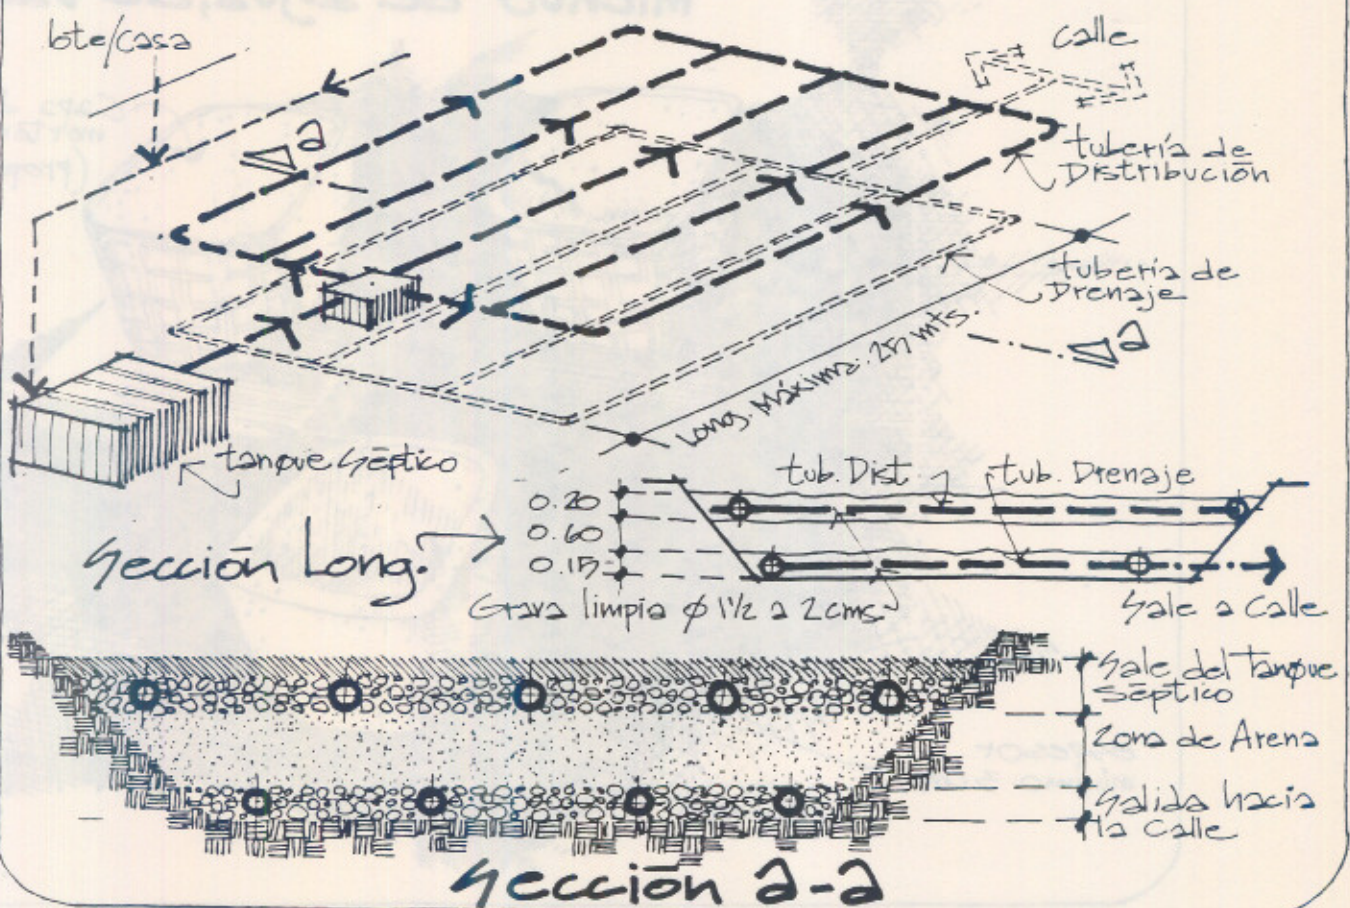 bte/casa
calle
a
tubería de
Distribución
tubería de
Drenaje
a
Long. Máxima. 25 mts.
tanque séptico
tub. Dist
tub. Drenaje
0.20
0.60
0.15
Sección Long.
Grava limpia ø 1½ a 2 cms.
Sale a Calle
Sale del Tanque
Séptico
Zona de Arena
Salida hacia
la Calle
Sección a-a